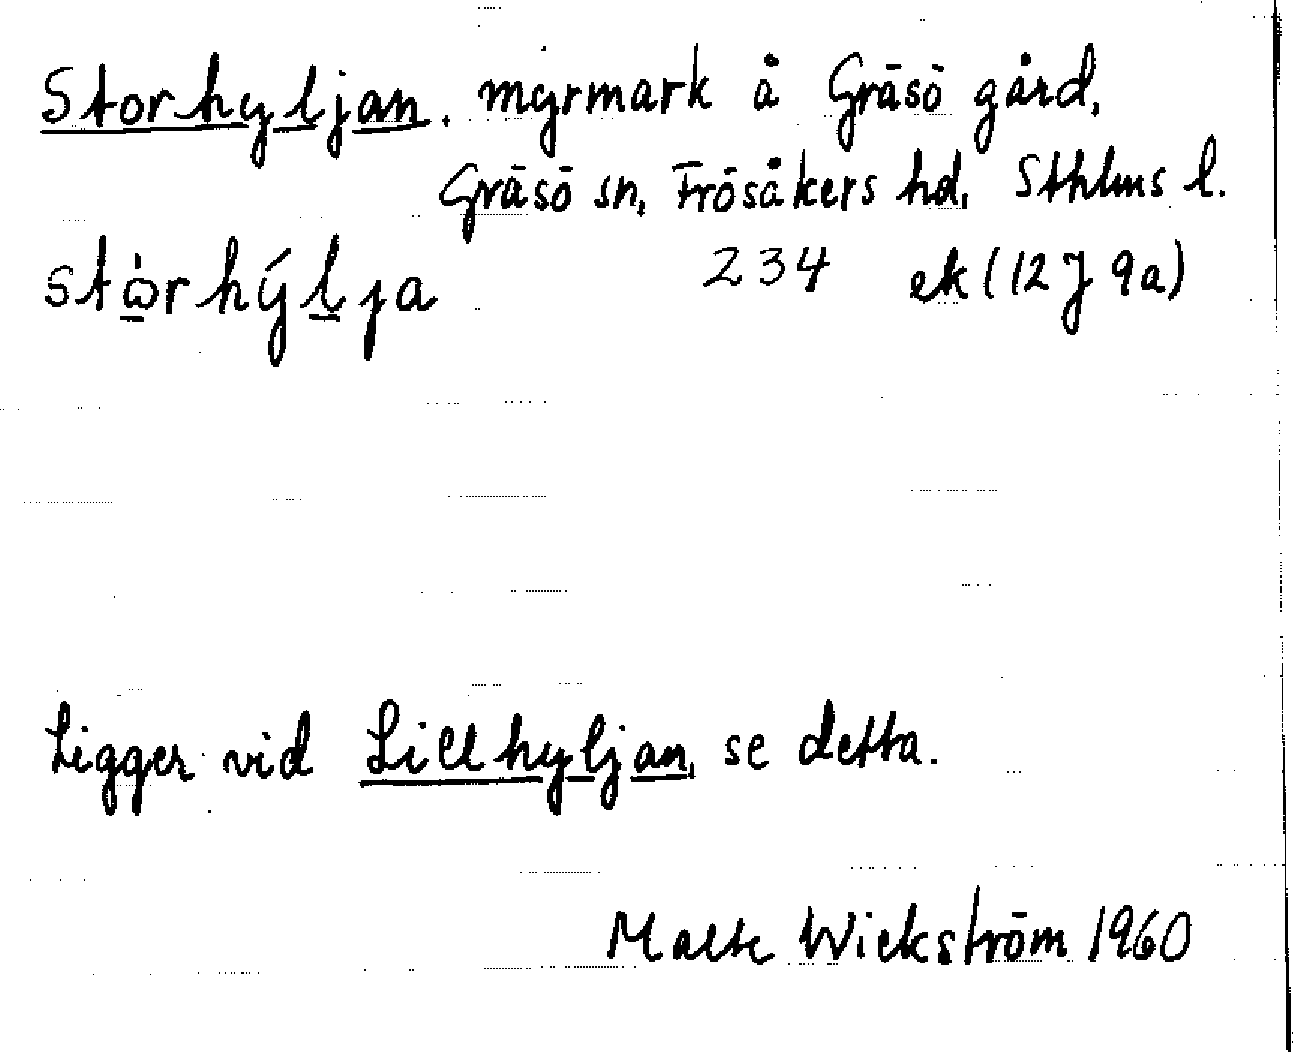 Storhyljan, myrmark å Gräsö gård,
Gräsö sn, Frösåkers hd, Sthlms l.
stὼ̲rhýl̲ja 234 ek (12J 9a)
Ligger vid Lillhyljan, se detta.
Malte Wickström 1960